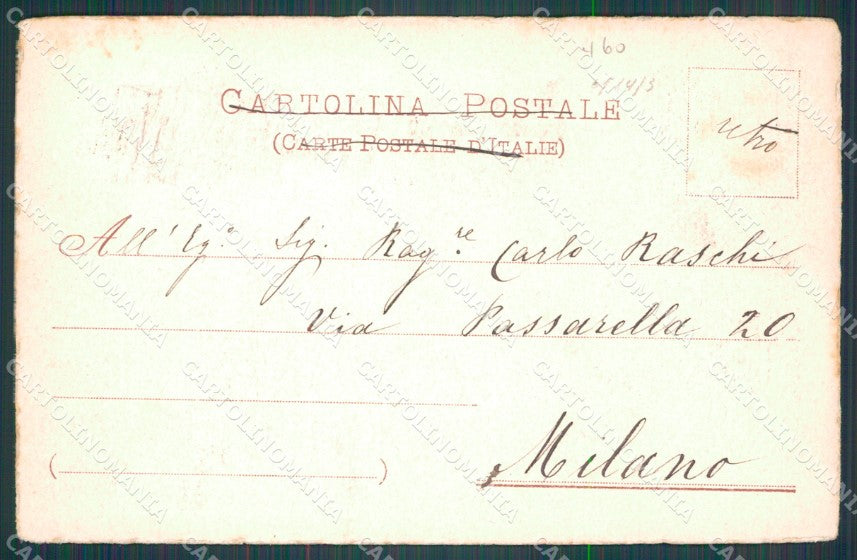 460
CARTOLINA POSTALE
(CARTE POSTALE D'ITALIE)
retro
All'Eg.º Sig. Rag.re Carlo Raschi
Via Passarella 20
Milano
CARTOLINOMANIA